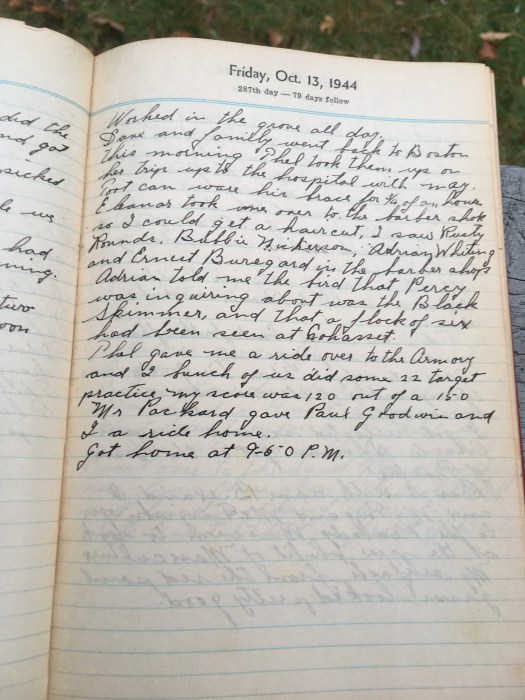 Friday, Oct. 13, 1944
287th day — 79 days follow
Worked in the grove all day.
Dave and family went back to Boston
this morning. Phel took them up on
her trip up to the hospital with may.
Toot can ware his brace for ¾ of an hour
Eleanor took me over to the barber shop
so I could get a haircut, I saw Rusty
Rounds, Bubbie Nickerson, Adrian Whiting
and Ernest Buregard in the barber shop
Adrian told me the bird that Percy
was inquiring about was the Black
Skimmer, and that a flock of six
had been seen at Cohasset.
Phel gave me a ride over to the Armory
and a bunch of us did some 22 target
practice my score was 120 out of a 150
Mr Packard gave Paul Goodwin and
I a ride home.
Got home at 9-50 P.M.
did the
and got
sicked
had
ning.
two
oon